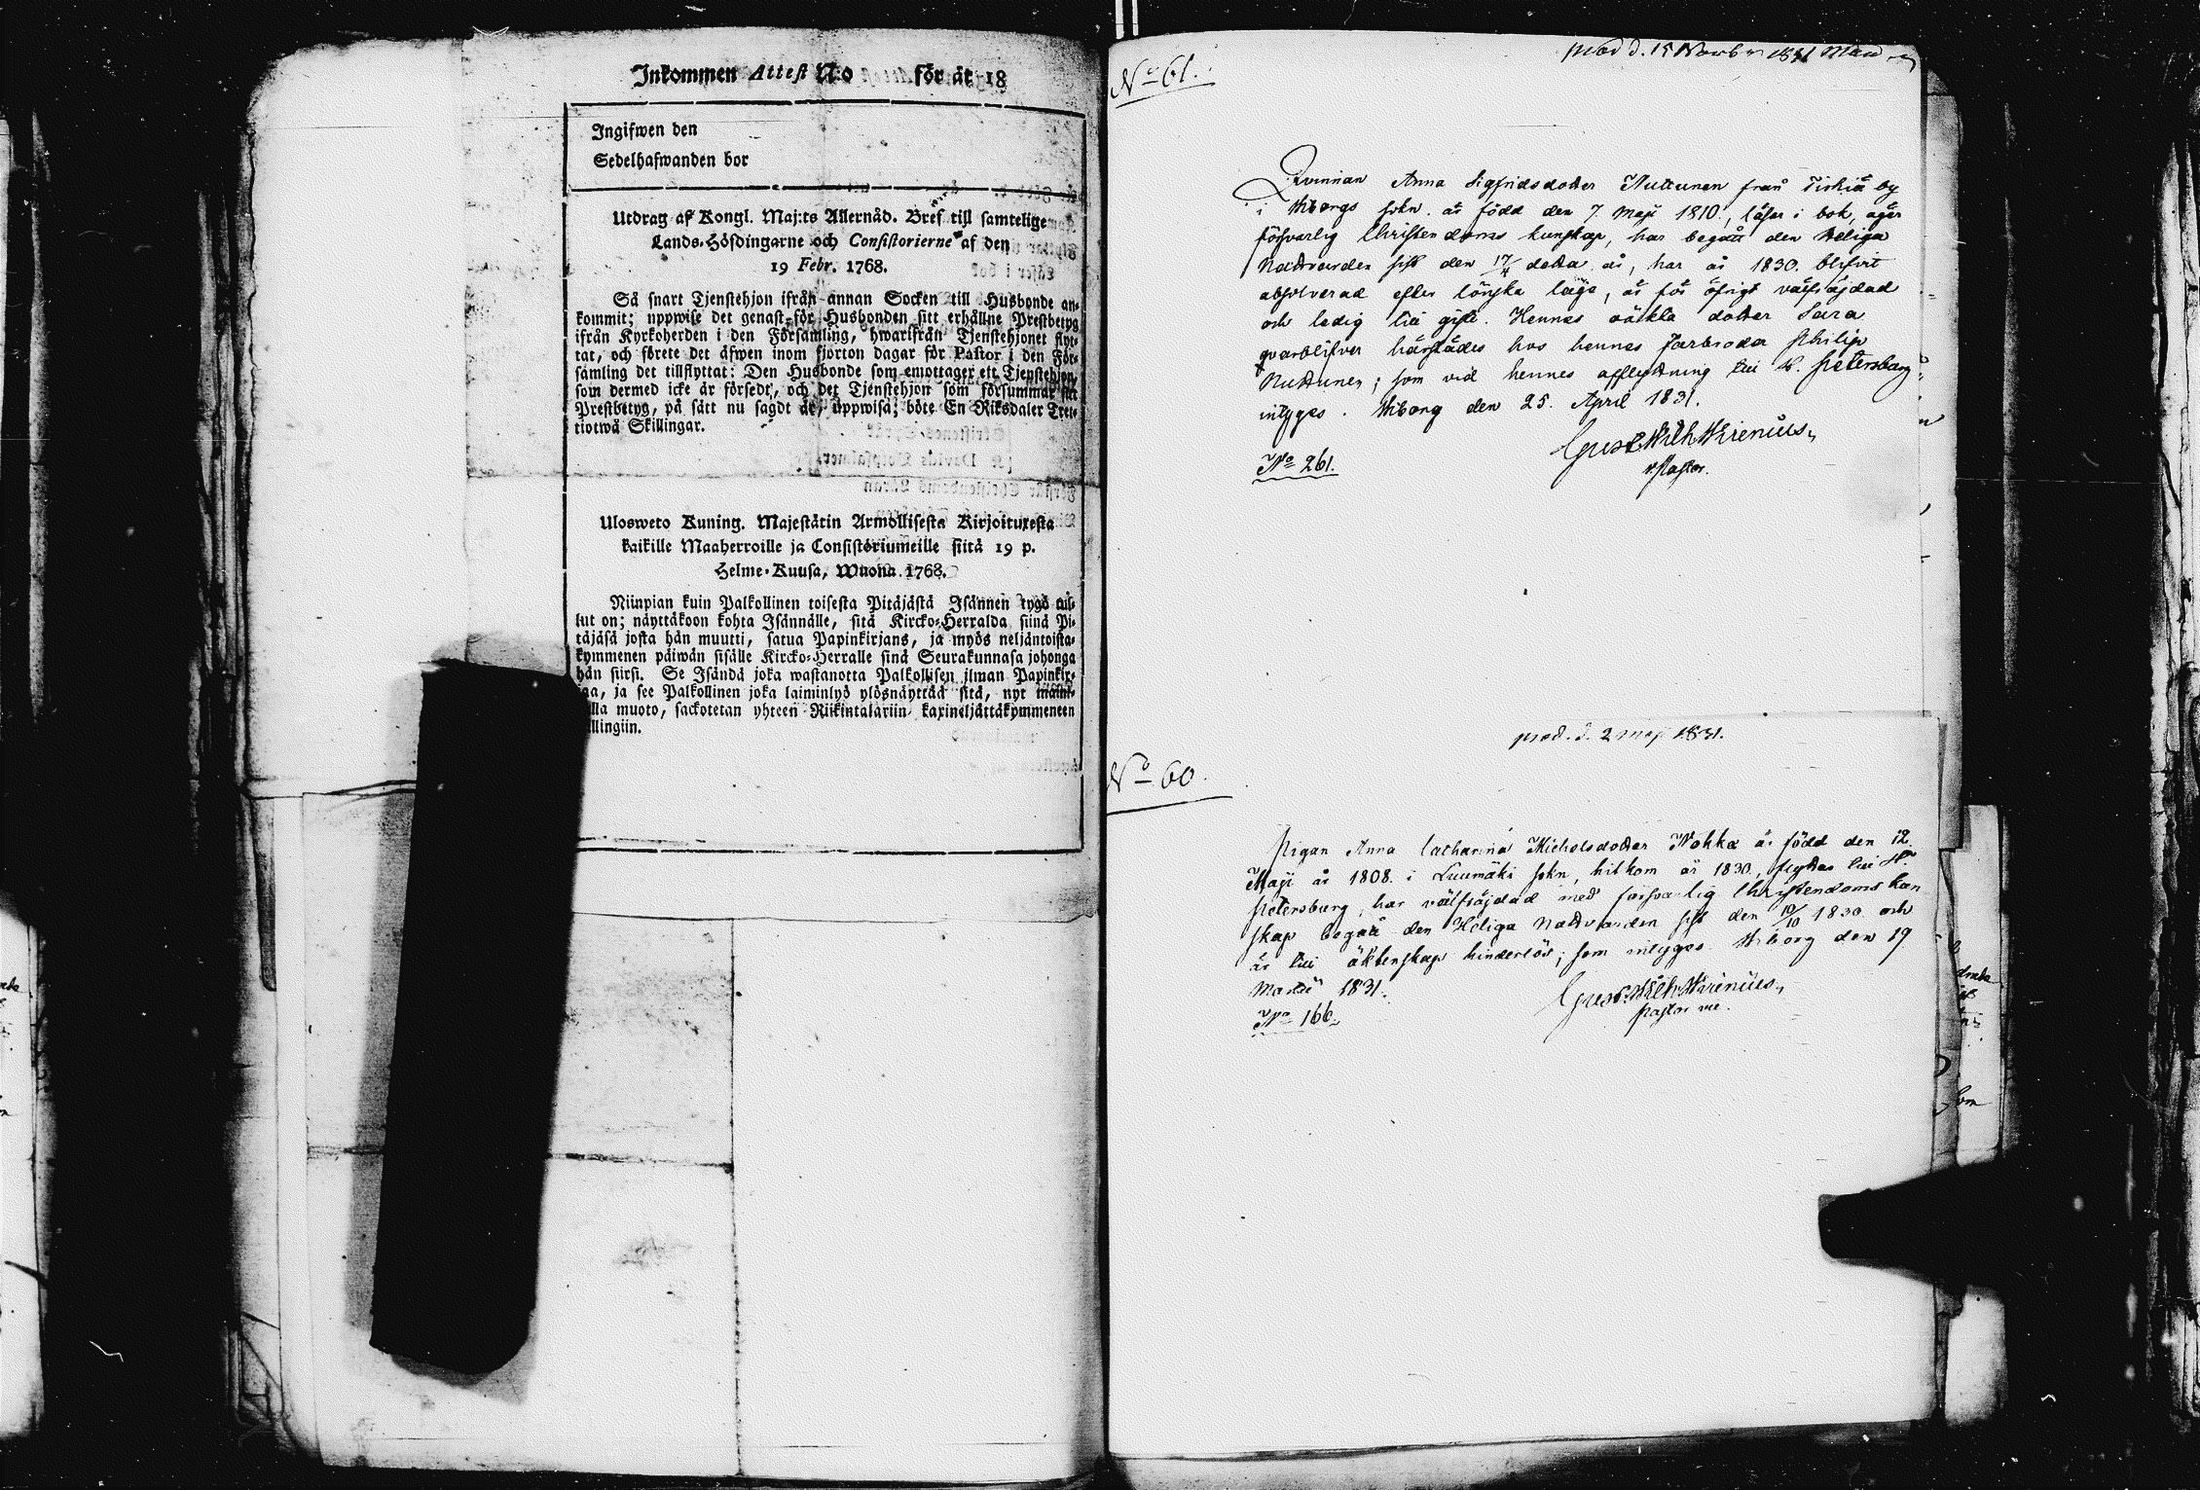 Inkommen Attest N:o för år 18
Ingifwen den
Sedelhafwanden bor
Utdrag af Kongl. Maj:ts Allernåd. Bref till samtelige
Lands-Höfdingarne och Consistorierne af den
19 Febr. 1768.
Så snart Tjenstehjon ifrån annan Socken till Husbonde an-
kommit; uppwise det genast för Husbonden sitt erhållne Prestbetyg
ifrån Kyrkoherden i den Församling, hwarifrån Tjenstehjonet flyt-
tat, och förete det äfwen inom fjorton dagar för Pastor i den För-
samling det tillflyttat: Den Husbonde som emottager ett Tjenstehjon,
som dermed icke är försedt, och det Tjenstehjon som försummar sitt
Prestbetyg, på sätt nu sagdt är, uppwisa; böte En Riksdaler Tret-
tiotwå Skillingar.
Ulosweto Kuning. Majestätin Armollisesta Kirjoituxesta
kaikille Maaherroille ja Consistoriumeille siitä 19 p.
Helme-Kuusa, Wuona 1768.
Niinpian kuin Palkollinen toisesta Pitäjästä Isännen tygö tul-
lut on; näyttäkoon kohta Isännälle, sitä Kircko-Herralda siinä Pi-
täjäsä josta hän muutti, satua Papinkirjans, ja myös neljäntoista-
kymmenen päiwän sisälle Kircko-Herralle sinä Seurakunnasa johonga
hän siirsi. Se Isändä joka wastanotta Palkollisen ilman Papinkir-
jaa, ja see Palkollinen joka laiminlyö ylösnäyttää sitä, nyt
lla muoto, sackotetan yhteen Riikintalariin kaxineljättäkymmeneen
llingiin.
prod d. 15 Novbr 1831
No 61.
Qvinnan Anna Sigfridsdotter Nuttunen från Tiskiä by
i Wiborgs sokn. är född den 7. Maji 1810, läser i bok, äger
försvarlig Christendoms kunskap, har begått den Heliga
Nattvarden sist den 17/4 detta år, har år 1830. blifvit
absolverad efter lönska läge, är för öfrigt välfräjdad
och ledig till gifte. Hennes oäckta dotter Sara
qvarblifver härstädes hos hennes farbroder Philip
Nuttunen; som vid hennes afflyttning till St. Petersburg
intygas. Wiborg den 25. April 1831.
Gust. Wilh Wirenius,
v. Pastor.
No 261.
prod. d. 2 maji 1831.
No 60.
Pigan Anna Catharina Michelsdotter Wohka är född den 12.
Maji år 1808. i Luumäki sokn, hitkom år 1830, flyttar till St.
Petersburg, har välfräjdad med försvarlig Christendoms kun
skap begått den Heliga Nattvarden sist den 10/10 1830. och
är till äktenskap hinderlös; som intygas. Wiborg den 19
Martii 1831.
Gust. Wilh. Wirenius,
Pastor vic.
No 166.